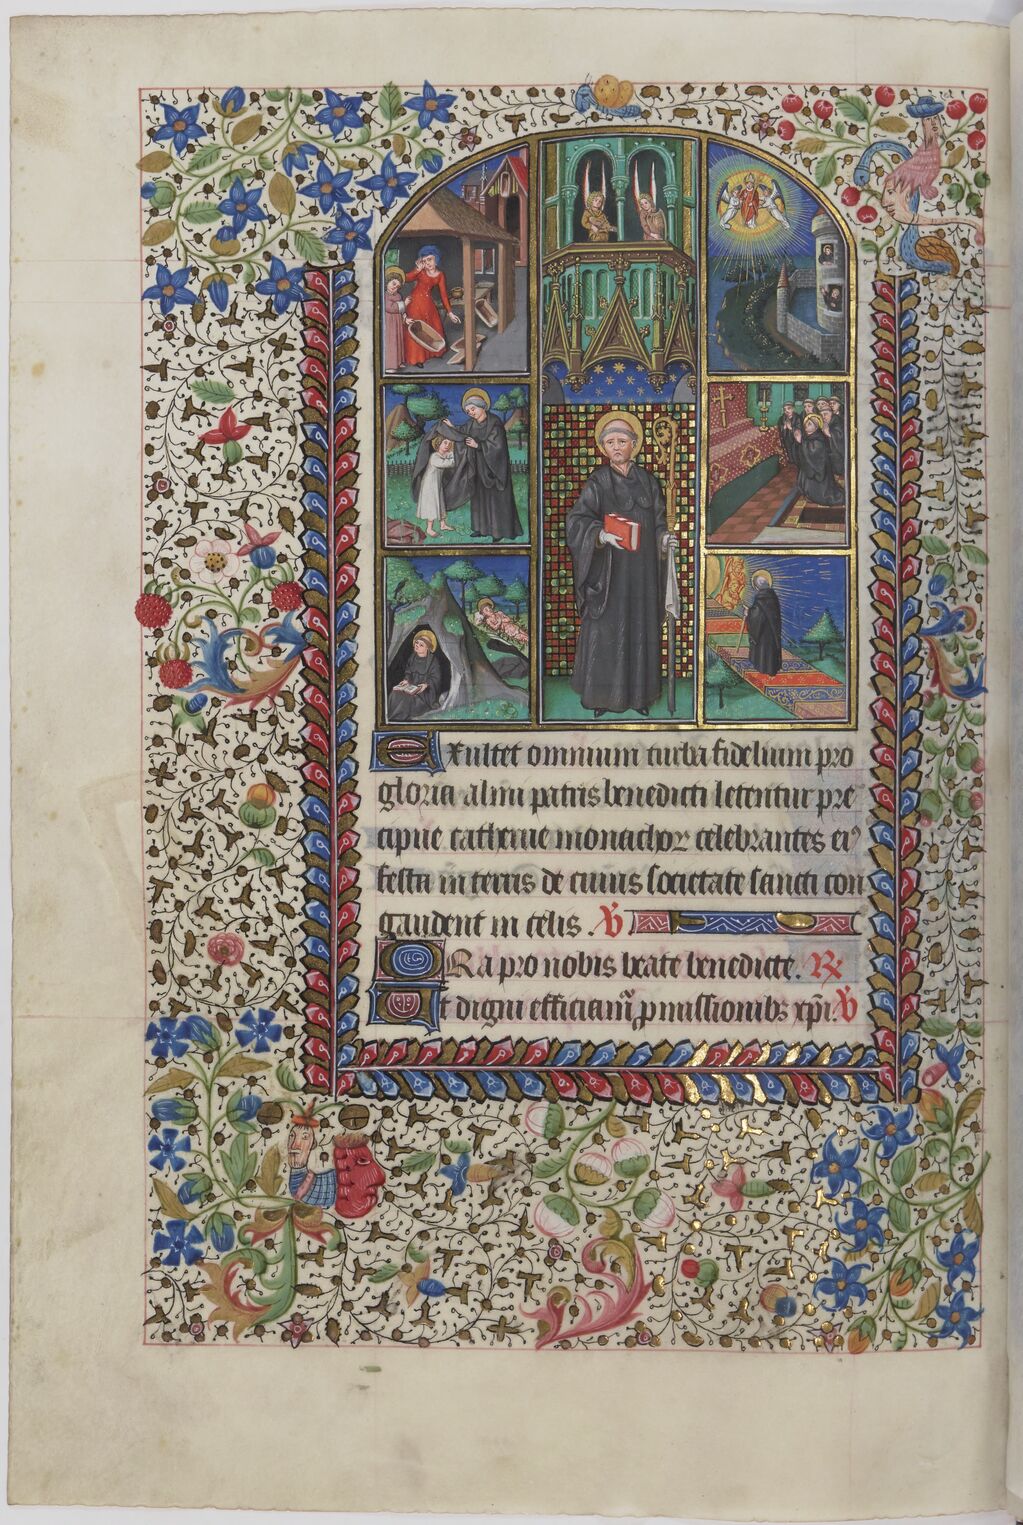 Exultet omnium turba fidelium pro
gloria almi patris benedicti letentur pre
cipue catherue monachoꝝ celebrantes eiꝰ
festa in terris de cuius societate sancti con
gaudent in celis . ℣
ORa pro nobis beate benedicte. ℟
Ut digni efficiamͬ ꝓmissionibꝫ xp̄i. ℣